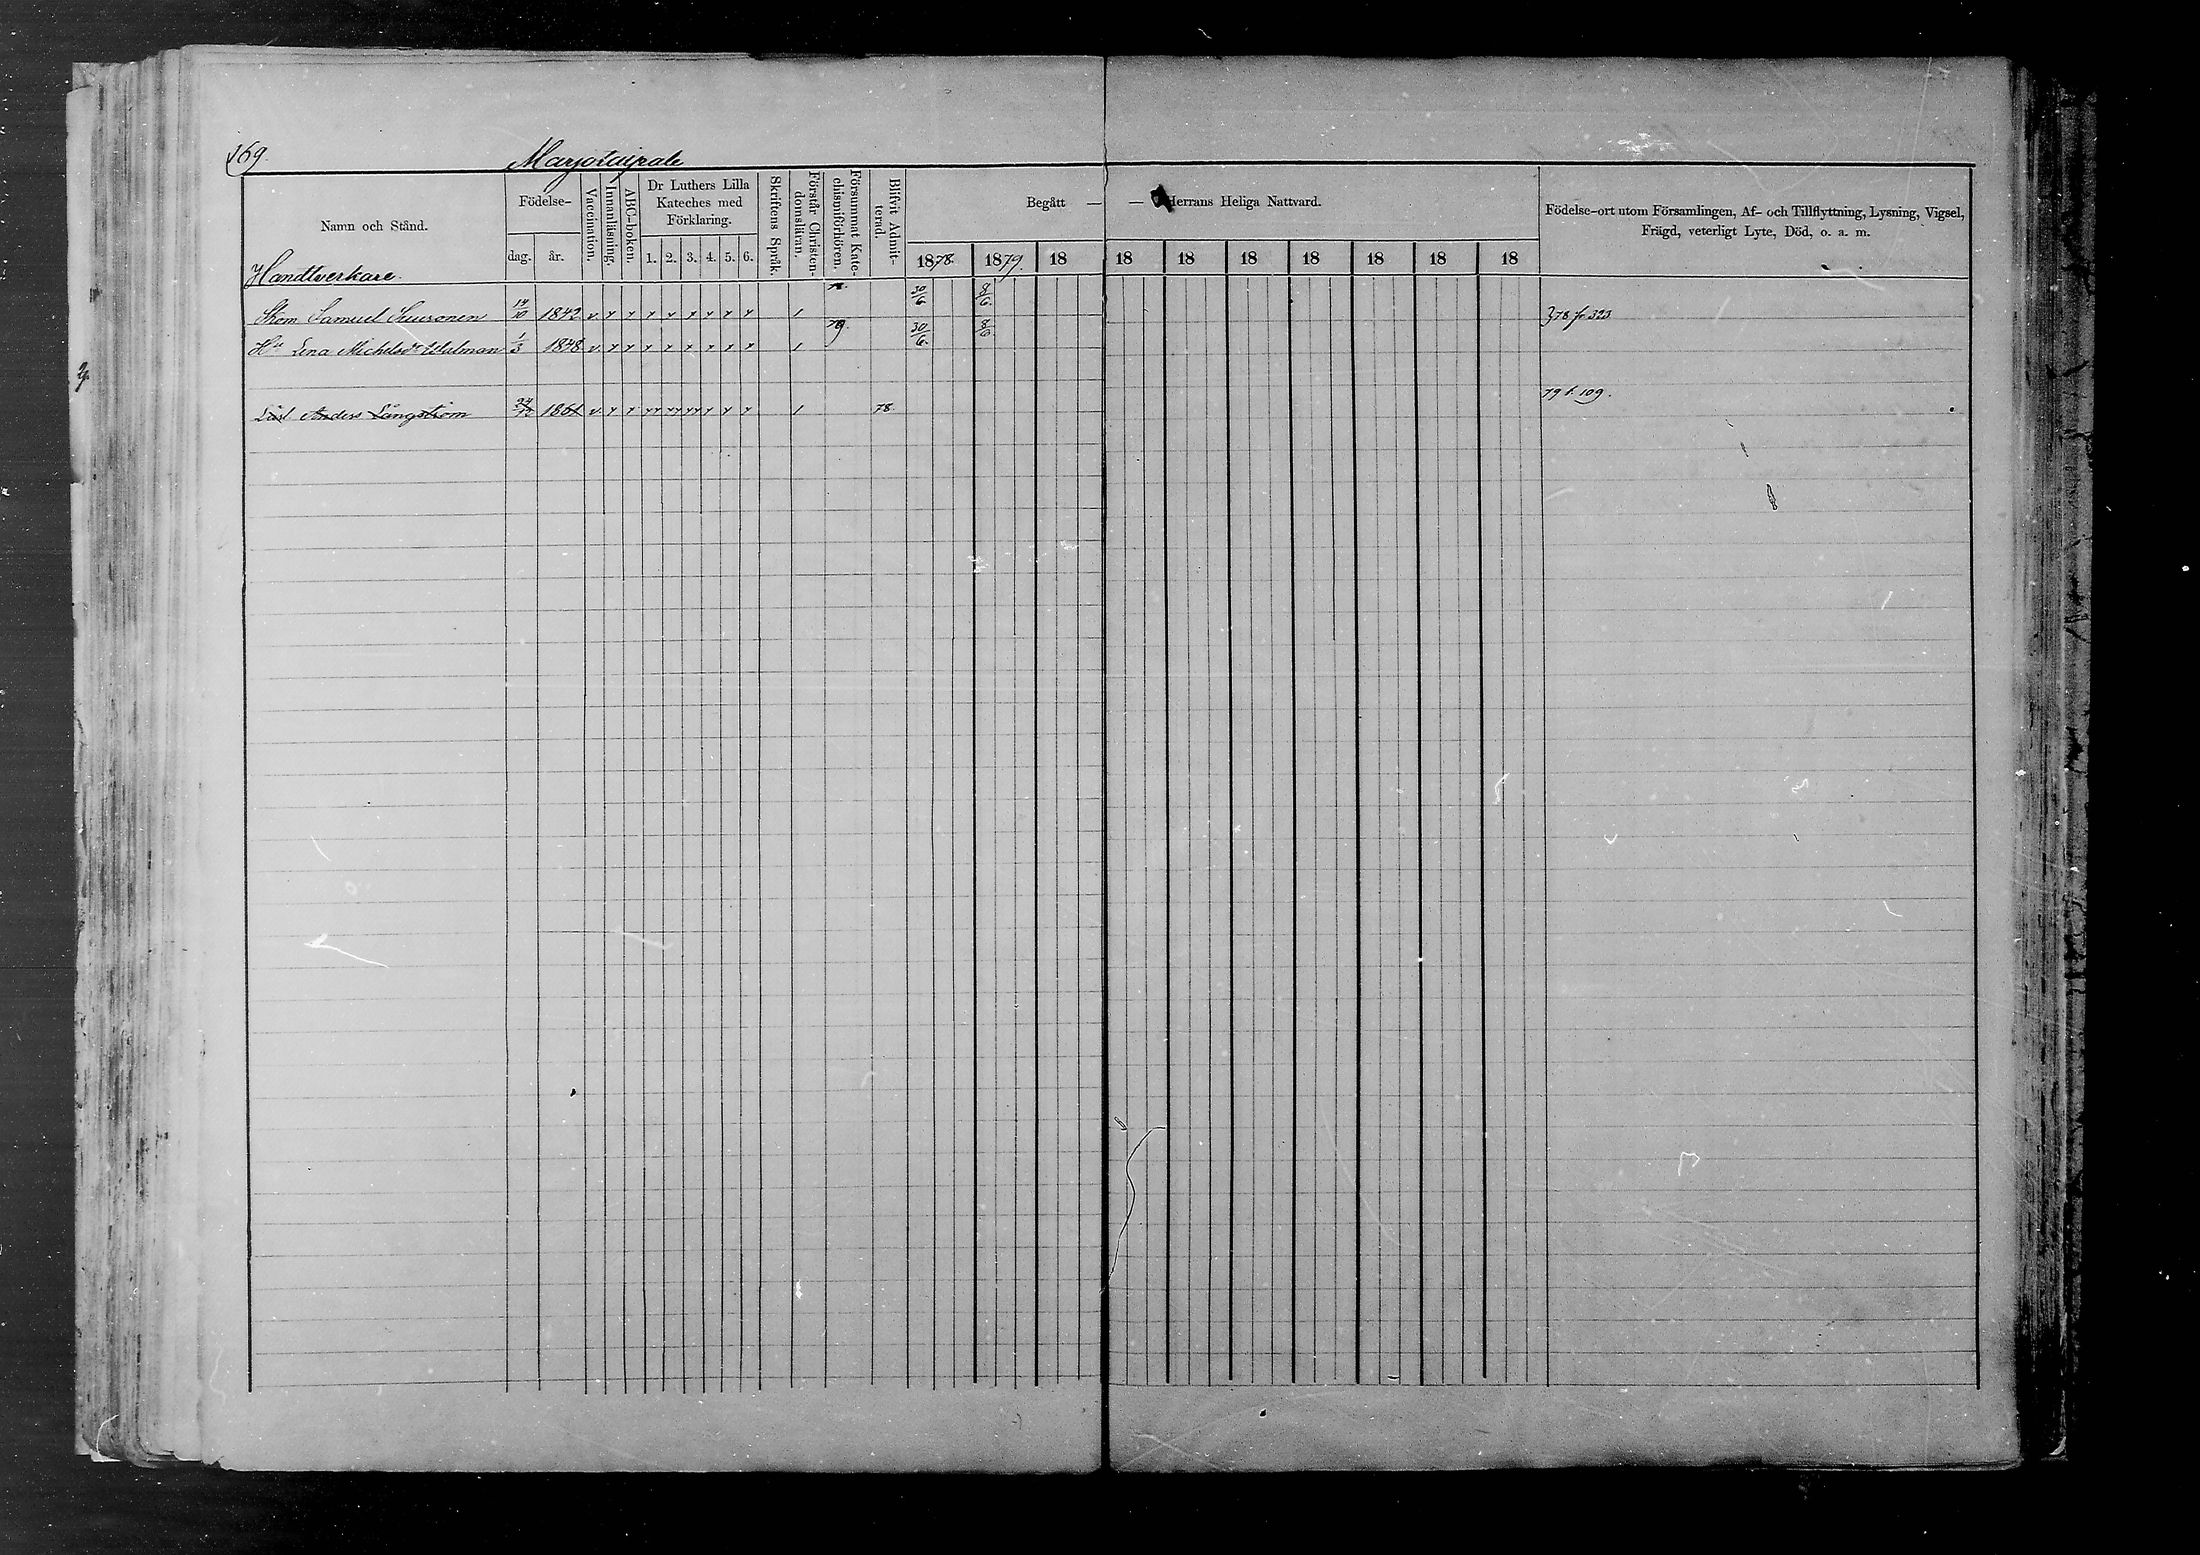 169.
Marjotaipale
Namn och Stånd.
Födelse-
dag. år.
Vaccination.
Innanläsning.
ABC-boken.
Dr Luthers Lilla
Kateches med
Förklaring.
1. 2. 3. 4. 5. 6.
Skriftens Språk.
Förstår Christen-
domsläran.
Försummat Kate-
chismiförhören.
Blifvit Admit-
terad.
Begått — — Herrans Heliga Nattvard.
1878. 1879. 18 18 18 18 18 18 18 18
Födelse-ort utom Församlingen, Af- och Tillflyttning, Lysning, Vigsel,
Frägd, veterligt Lyte, Död, o. a. m.
Handtverkare.
Skom Samuel 14/10 1842 v 1 30/6 8/6 378 fr 323
Hu Lena Michelsdr 1/3 1848 v 1 79. 30/6. 8/6
Anders Långström 24/12 1861 v 1 78. 79 f. 109.